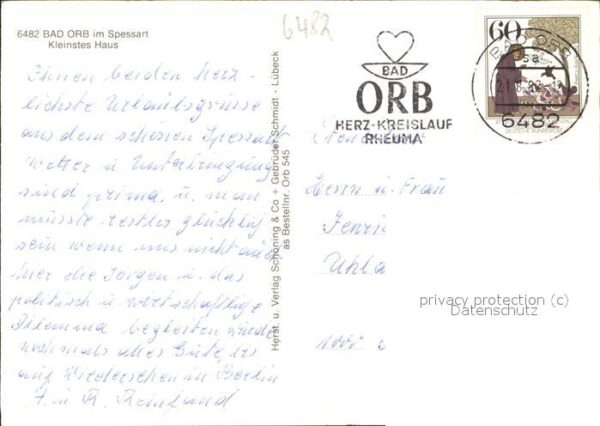 6482 BAD ORB im Spessart
Kleinstes Haus
6482
Ihnen beiden herz-
lichste Urlaubsgrüsse
aus dem schönen Spessart
Wetter u. Unterbringung
sind prima, u. man
müsste restlos glücklich
sein wenn uns nicht auch
hier die Sorgen u. das
politisch u. wirtschaftlige
Dilemma begleiten würde
nochmals alles Gute, bis
auf Wiedersehen in Berlin
F. u. R.
Herst. u. Verlag Schöning & Co + Gebrüder Schmidt - Lübeck
as Bestellnr. Orb 545
BAD
ORB
HERZ-KREISLAUF
RHEUMA
60
DEUTSCHE BUNDESPOST
BAD ORB
6482
Herrn u. Frau
Uhla
privacy protection (c)
Datenschutz